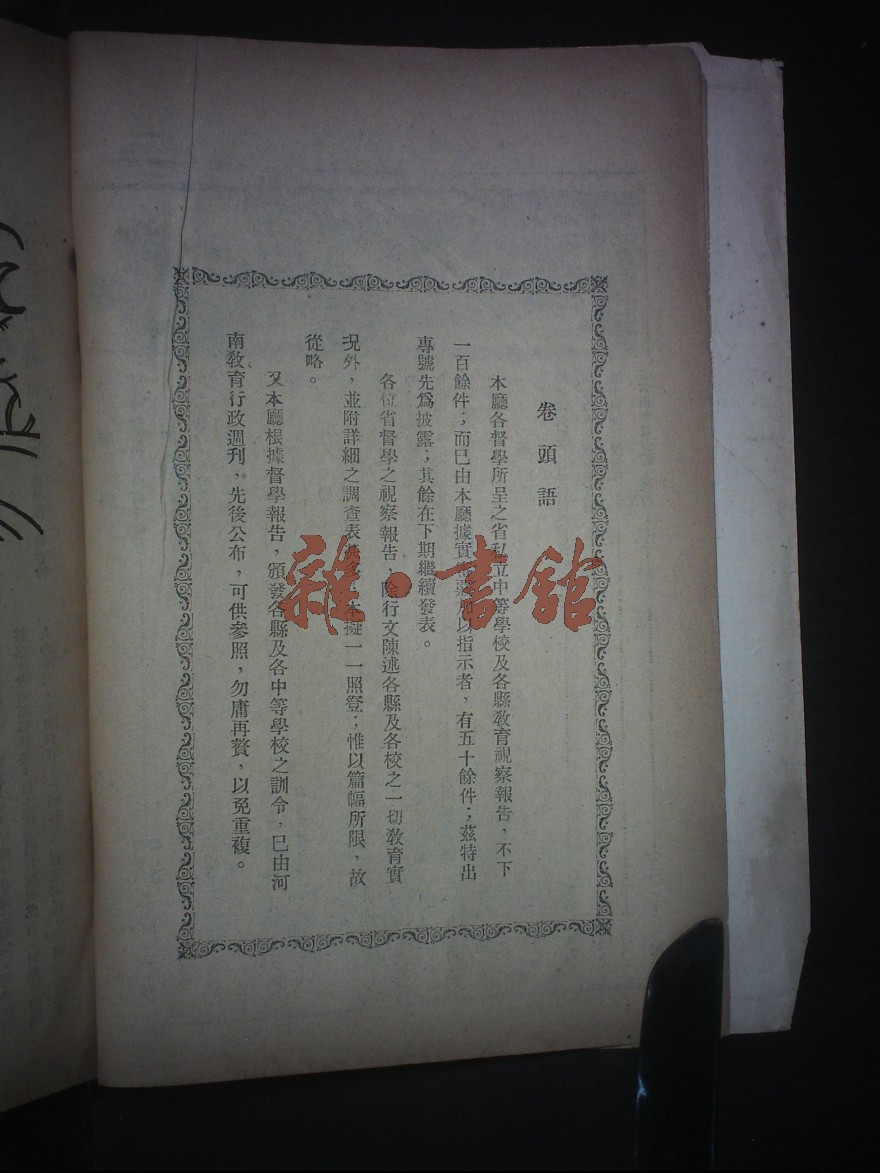 卷頭語
本廳各督學所呈之省私立中等學校及各縣教育視察報告，不下
一百餘件；而已由本廳據實 以指示者，有五十餘件；茲特出
專號先爲披露；其餘在下期繼續發表。
各位省督學之視察報告，除行文陳述各縣及各校之一切教育實
况外，並附詳細之調查表 本擬一一照登；惟以篇幅所限，故
從略。
又本廳根據督學報告，頒發各縣及各中等學校之訓令，已由河
南教育行政週刊，先後公布，可供參照，勿庸再贅，以免重複。
雜·書館